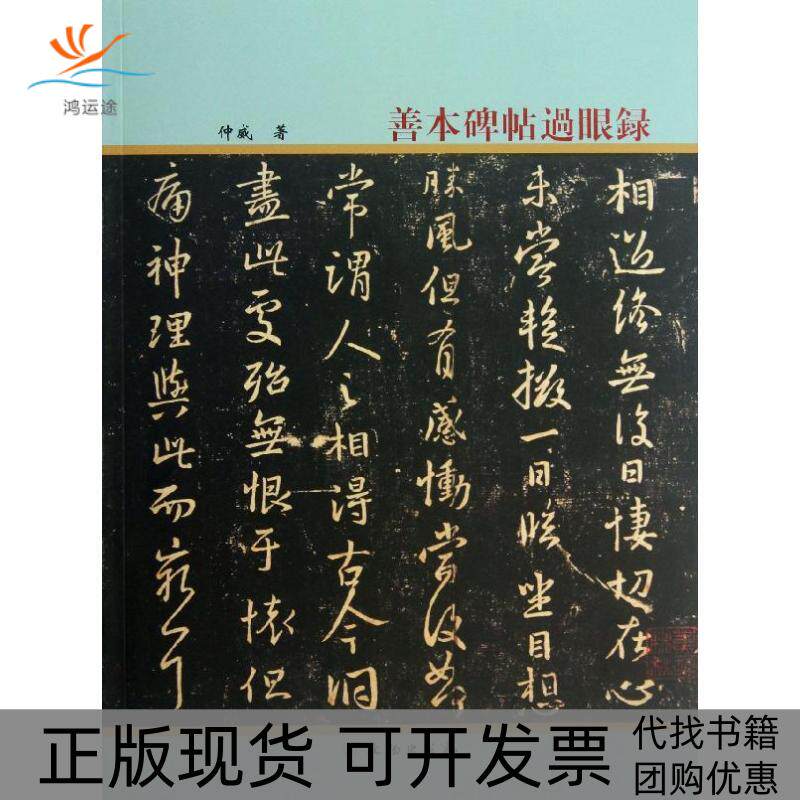 鸿运途
善本碑帖過眼録
仲威 著
相過終無復日悽切在心
未嘗暫掇一日臨坐目想
勝風但有感慟當復如何
常謂人之相得古今洞
盡此處殆無恨於懷但
痛神理與此而窮
正版现货
代找书籍
团购优惠